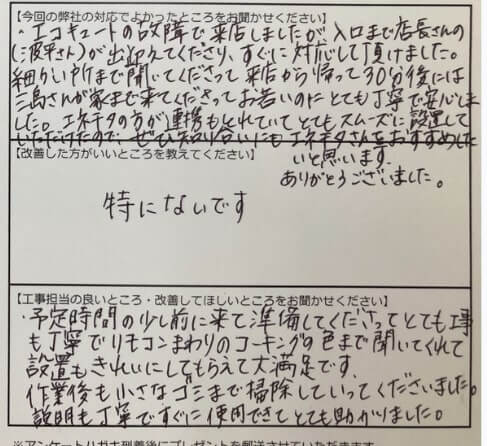 【今回の弊社の対応でよかったところをお聞かせください】
・エコキュートの故障で来店しましたが、入口まで店長さんの
( さん)が出迎えてくださり、すぐに対応して頂けました。
細かい所まで聞いてくださって来店から帰って30分後には
三島さんが家まで来てくださってお若いのにとても丁寧で安心しま
した。エネキタの方が連携もとれていてとてもスムーズに設置して
いただけたので、ぜひ知り合いにもエネキタさんをおすすめした
いと思います。
ありがとうございました。
【改善した方がいいところを教えてください】
特にないです
【工事担当の良いところ・改善してほしいところをお聞かせください】
・予定時間の少し前に来て準備してくださってとても工事
も丁寧でリモコンまわりのコーキングの色まで聞いてくれて
設置もきれいにしてもらえて大満足です。
作業後も小さなゴミまで掃除していってくださいました。
説明も丁寧ですぐに使用できてとても助かりました。
※アンケートハガキ到着後にプレゼントを郵送させていただきます